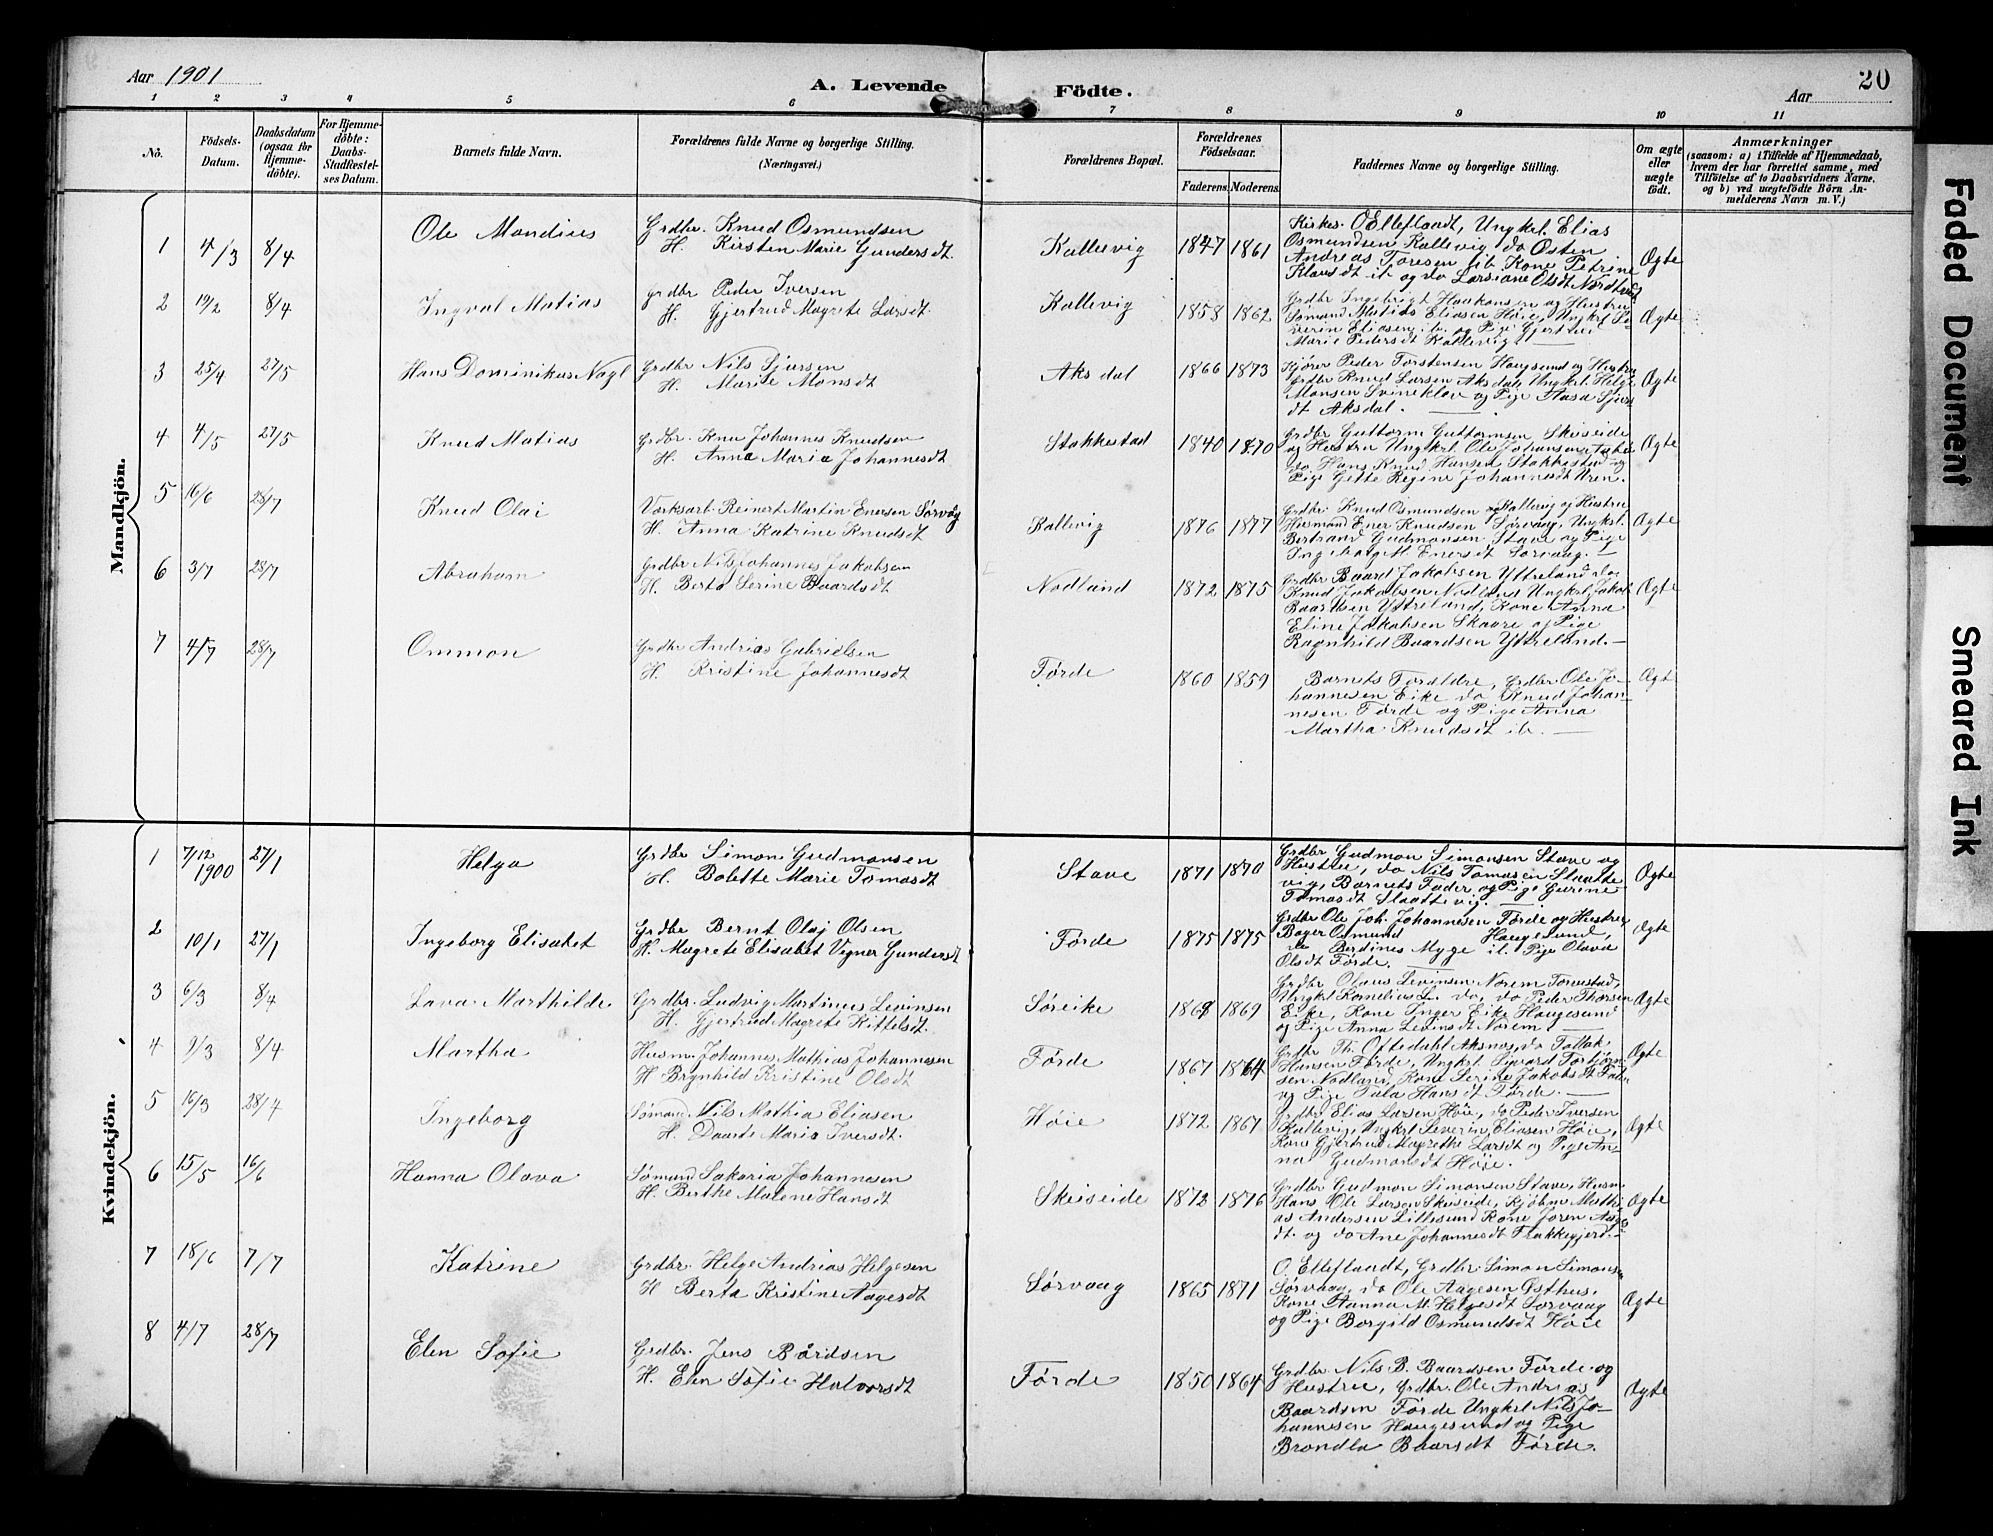 Aar 1901
A. Levende Födte.
Aar
20
1 2 3 4 5 6 7 8 9 10 11
No.
Födsels-Datum.
Daabsdatum (ogsaa för Hjemme-döbte).
For Hjemme-döbte: Daabs-Stadfæstelses Datum.
Barnets fulde Navn.
Forældrenes fulde Navne og borgerlige Stilling. (Næringsvei.)
Forældrenes Bopæl.
Forældrenes Födselsaar.
Faderens. Moderens.
Faddernes Navne og borgerlige Stilling.
Om ægte eller uægte födt.
Anmærkninger
(saasom: a) i Tilfælde af Hjemmedaab, hvem der har forrettet samme, med Tilföielse af to Daabsvidners Navne. og b) ved uægtefödte Börn Anmelderens Navn m. V.)
Mandkjön.
1 4/3 8/4 Ole Mandius Grdbr. Knud Osmundsen
H. Kirsten Marie Gundersdt.
Kallevig 1847 1861
Kirkes. O Elleflaadt, Ungkrl. Elias
Osmundsen Kallevig do Osten
Andreas Toresen ib. Kone Petrine
Klausdt ib og do Larsiane Olsdt
Ægte
2 19/2 8/4 Ingval Matias Grdbr Peder Iversen
H. Gjertrud Magrete Larsdt.
Kallevig 1858 1862
Grdbr Ingebrigt Haakonsen og Hustru
Sømand Matias Eliasen Høie, Ungkrl Se-
verin Eliasen ib. og Pige Gjertrud
Marie Pedersdt Kallevig
Ægte
3 25/4 27/5 Hans Dominikus Nagl Grdbr Nils Sjursen
H. Marie Monsdt
Aksdal 1866 1873
Kjører Peder Torstensen Haugsund og Hustru
Grdbr Knud Larsen Aksdal, Ungkrl. Helge
Monsen Svinekløv og Pige Aasa Sjurs-
dt Aksdal.
Ægte
4 4/5 27/5 Knud Matias Grdbr. Knu Johannes Knudsen
H. Anna Maria Johannesdt
Stakkestad 1840 1870
Grdbr Guttorm Guttormsen Skeiseide
og Hustru Ungkrl. Ole Johansen
do Hans Knud Hansen Stakkestad og
Pige Gette Regine Johannesdt
Ægte
5 16/6 28/7 Knud Olai Værksarb. Reinert Martin Enersen Sørvåg
H. Anna Katrine Knudsdt
Kallevig 1876 1877
Grdbr Knud Osmundsen Kallevig og Hustru
Husmand Ener Knudsen Sørvaag, Ungkrl.
Bertrand Gudmonsen Stave og Pige
Ingeborg M. Enersdt Sørvaag.
Ægte
6 3/7 28/7 Abraham Grdbr Nils Johannes Jakobsen
H. Berta Serine Baardsdt
Nodland 1872 1875
Grdbr Baard Jakobsen Yttreland do
Knud Jakobsen Nodland Ungkrl. Jakob
Baardsen Yttreland, Kone Anna
Eline Jakobsen Skaare og Pige
Ragnhild Baardsen Yttreland.
Ægte
7 4/7 28/7 Ommon Grdbr Andrias Gabrielsen
H. Kristine Johannesdt
Førde 1860 1859
Barnets Forældre, Grdbr. Ole Jo-
hannesen Eike do Knud Johan-
nesen Førde og Pige Anna
Martha Knudsdt ib.
Ægt
Kvindekjön.
1 7/12 1900 27/1 Helga Grdbr Simon Gudmonsen
H. Bolette Marie Tomasdt
Stave 1871 1870
Grdbr Gudmon Simonsen Stave og
Hustru, do Nils Tomasen Slaatte-
vig, Barnets Fader og Pige Gurine
Tomasdt Slaattevig.
Ægte
2 10/1 27/1 Ingeborg Elisabet Grdbr Bernt Olaj Olsen
H. Magrete Elisabet Vegner Gundersdt
Førde 1875 1875
Grdbr Ole Joh. Johannesen Førde og Hustru
Bager Osmund Haugesund,
do Berdines Myge ib. Pige Olava
Olsdt Førde.
Ægte
3 6/3 8/4 Lava Marthilde Grdbr. Ludvig Martinus Levinsen
H. Gjertrud Magrete Kittelsdt.
Søreike 1869
Grdbr Olaus Levinsen Norem Torvestad,
Ungkl Kornelius L. do, do Peder Thorsen
Eike, Kone Inger Eike Haugesund
og Pige Anna Levinsdt Norem.
Ægte
4 9/3 8/4 Martha Husm. Johannes Mathias Johannesen
H. Brynhild Kristine Olsdt
Førde 1867 1864
Grdbr Th. Oftedahl Aksnes, do Tollak
Hansen Førde, Ungkrl Sivard Torbjørn-
sen Nodland, Kone Serine Jakobsdt
og Pige Tala Hansdt Førde.
Ægte
5 16/3 28/4 Ingeborg Sømand Nils Mathia Eliasen
H. Daarte Maria Iversdt.
Høie 1872 1867
Grdbr Elias Larsen Høie, do Peder Iversen
Kallevig, Ungkrl Severin Eliasen Høie,
Kone Gjertrud Magrethe Larsdt og Pige An-
na Gudmonsdt Høie.
Ægte
6 15/5 16/6 Hanna Olava Sømand Sakaria Johannesen
H. Berthe Malene Hansdt
Skeiseide 1872 1876
Grdbr Gudmon Simonsen Stave, Husm.
Hans Ole Larsen Skeiseide, Kjøbm Mathi-
as Andersen Littlesund Kone Joren Aage-
dt. og do Ane Johannesdt Frakkagjerd.
Ægte
7 18/6 7/7 Katrine Grdbr. Helge Andrias Helgesen
H Berta Kristine Aagesdt
Sørvaag 1865 1871
O. Elleflaadt, Grdbr. Simon Simonsen
Sørvaag, do Ole Aagesen Østhus,
Kone Hanna M. Helgesdt Sørvaag
og Pige Borgild Osmundsdt Høie
Ægte
8 4/7 28/7 Elen Sofie Grdbr. Jens Bårdsen
H. Elen Sofie Halvorsdt
Førde 1850 1864
Grdbr. Nils B. Baardsen Førde og
Hustru, Grdbr. Ole Andrias
Baardsen Førde Ungkrl Nils Jo-
hannesen Haugesund og Pige
Brondla Baarsdt Førde.
Ægte
Faded Document
Smeared Ink